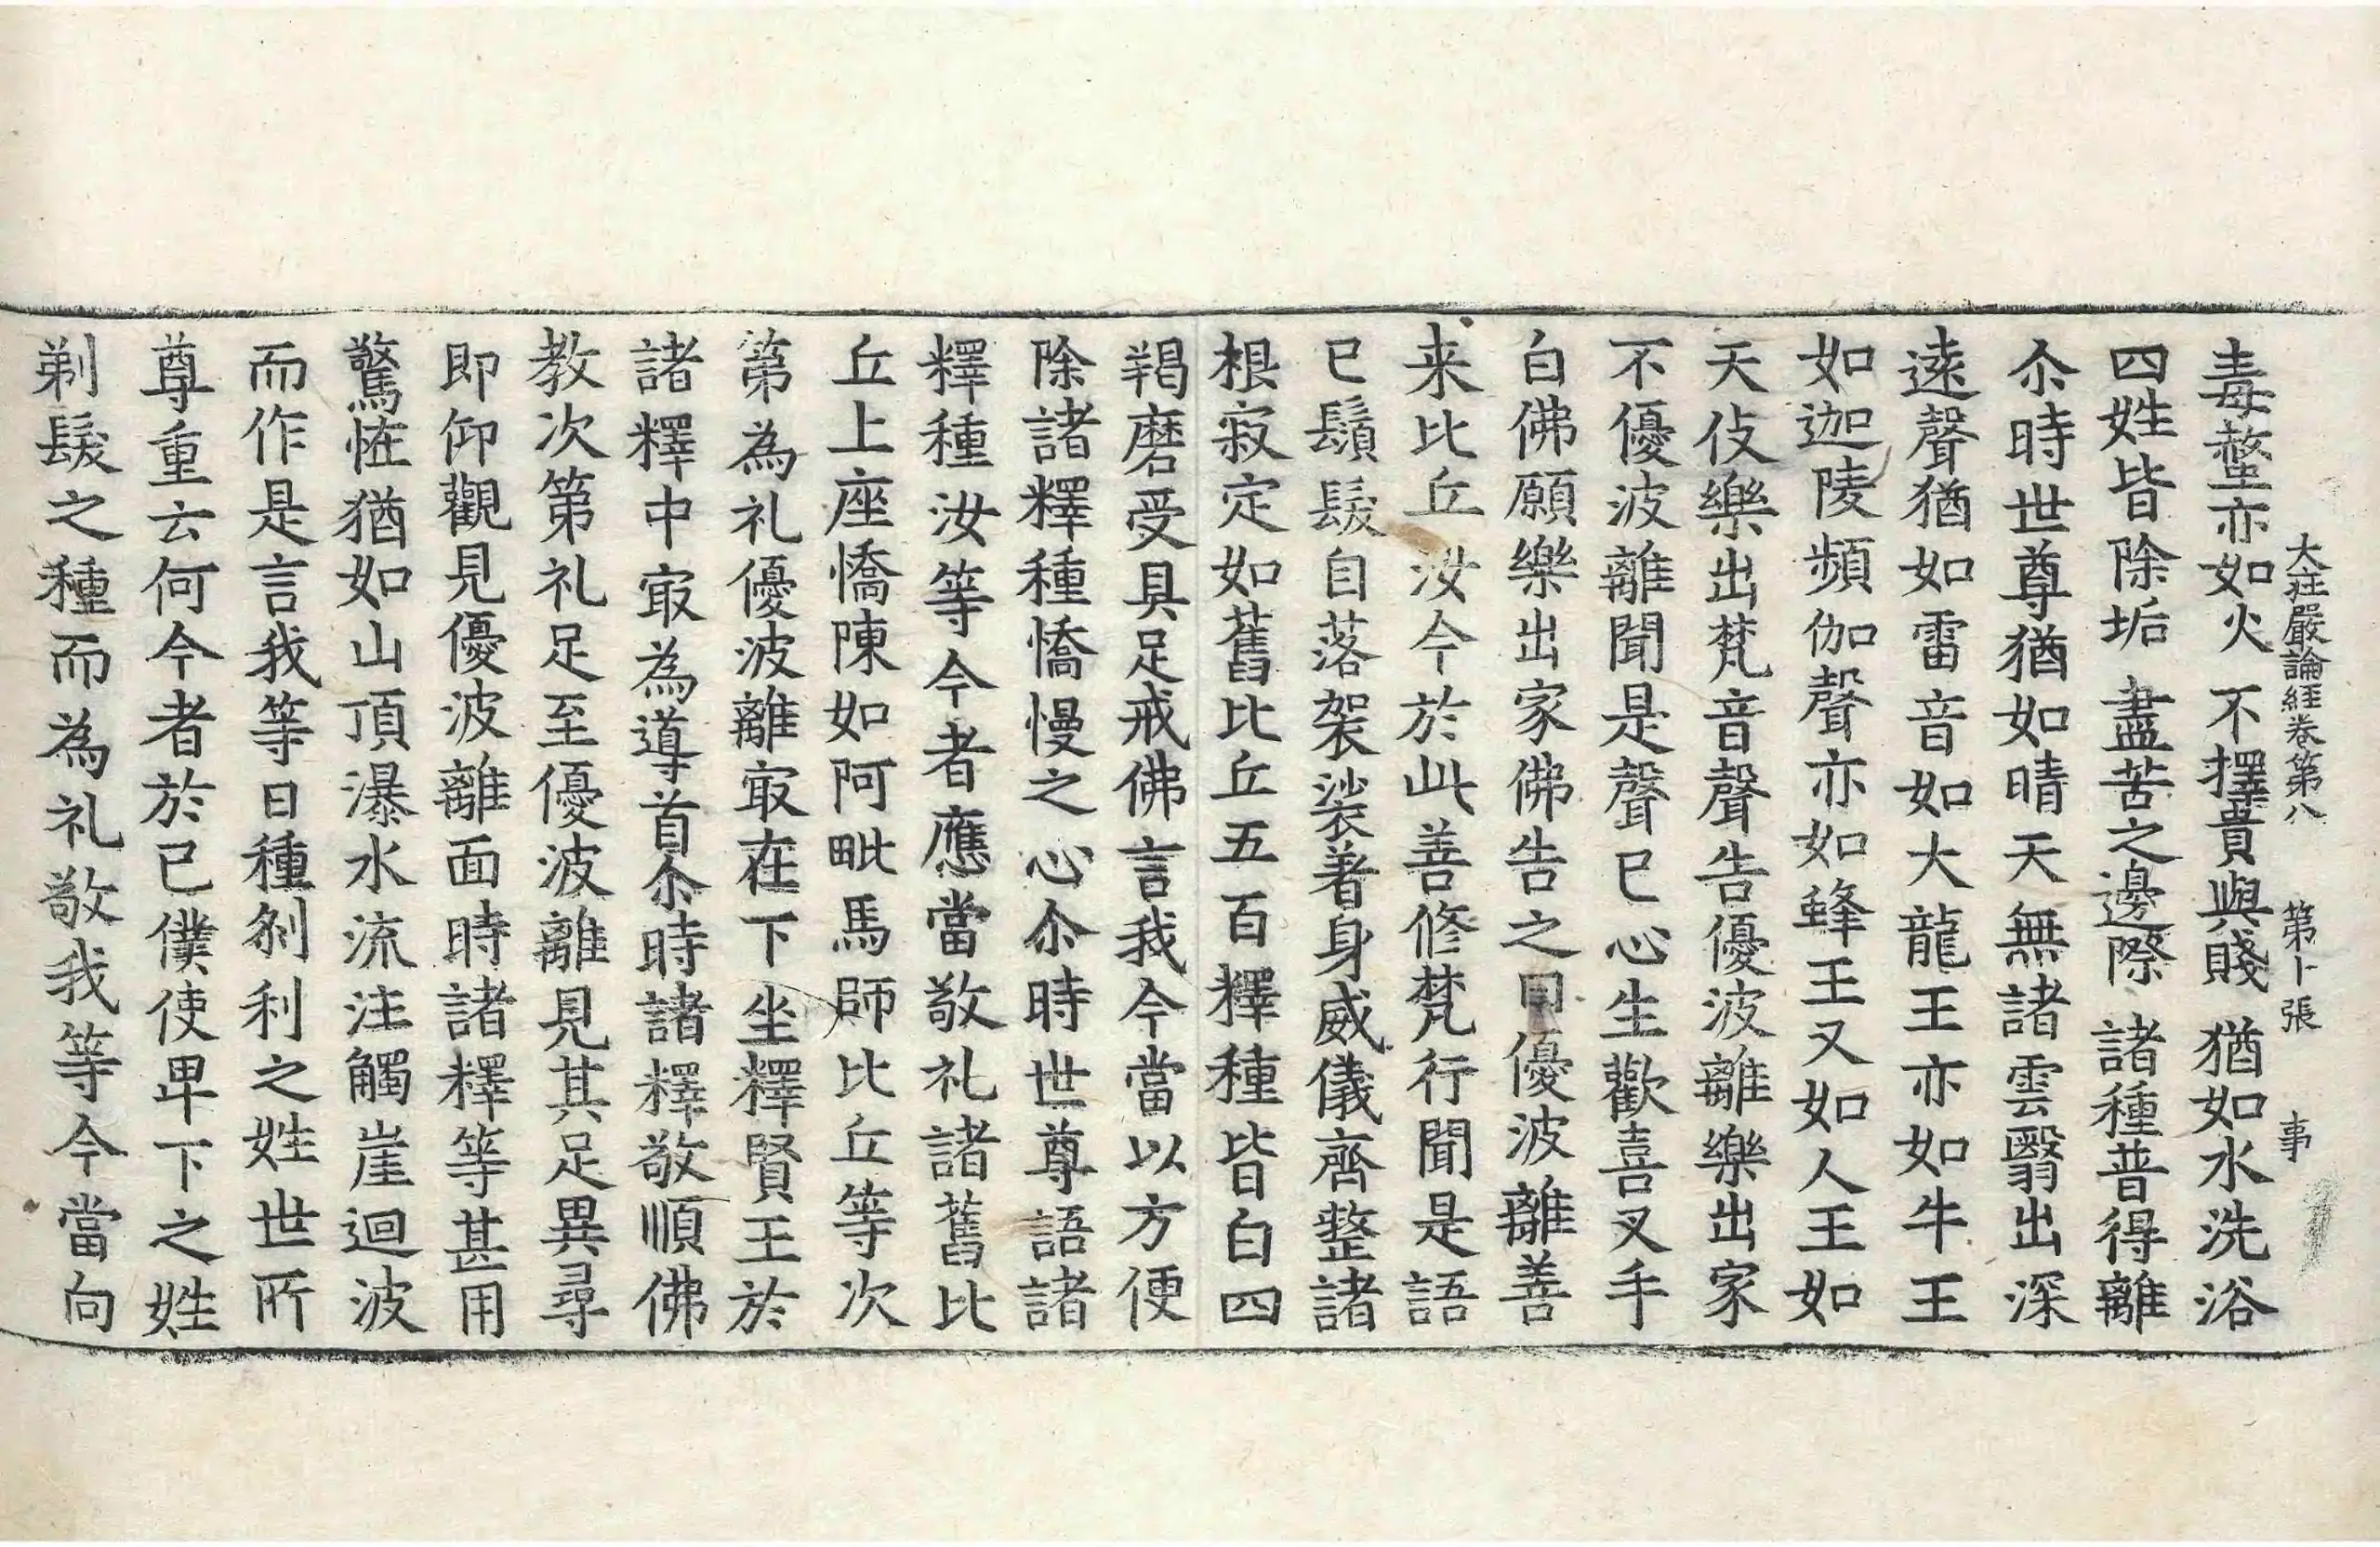 大莊嚴論經卷第八　第卜張　事
毒螫亦如火　不擇貴與賤　猶如水洗浴
四姓皆除垢　盡苦之邊際　諸種普得離
尒時世尊猶如晴天無諸雲翳出深
遠聲猶如雷音如大龍王亦如牛王
如迦陵頻伽聲亦如蜂王又如人王如
天伎樂出梵音聲告優波離樂出家
不優波離聞是聲已心生歡喜叉手
白佛願樂出家佛告之曰優波離善
来比丘汝今於此善修梵行聞是語
已鬚髮自落袈裟著身威儀齊整諸
根寂定如舊比丘五百釋種皆白四
羯磨受具足戒佛言我今當以方便
除諸釋種憍慢之心尒時世尊語諸
釋種汝等今者應當敬礼諸舊比
丘上座憍陳如阿毗馬師比丘等次
第為礼優波離㝡在下坐釋賢王於
諸釋中㝡為導首尒時諸釋敬順佛
教次第礼足至優波離見其足異尋
即仰觀見優波離面時諸釋等甚用
驚恠猶如山頂瀑水流注觸崖迴波
而作是言我等日種剎利之姓世所
尊重云何今者於已僕使卑下之姓
剃髮之種而為礼敬我等今當向